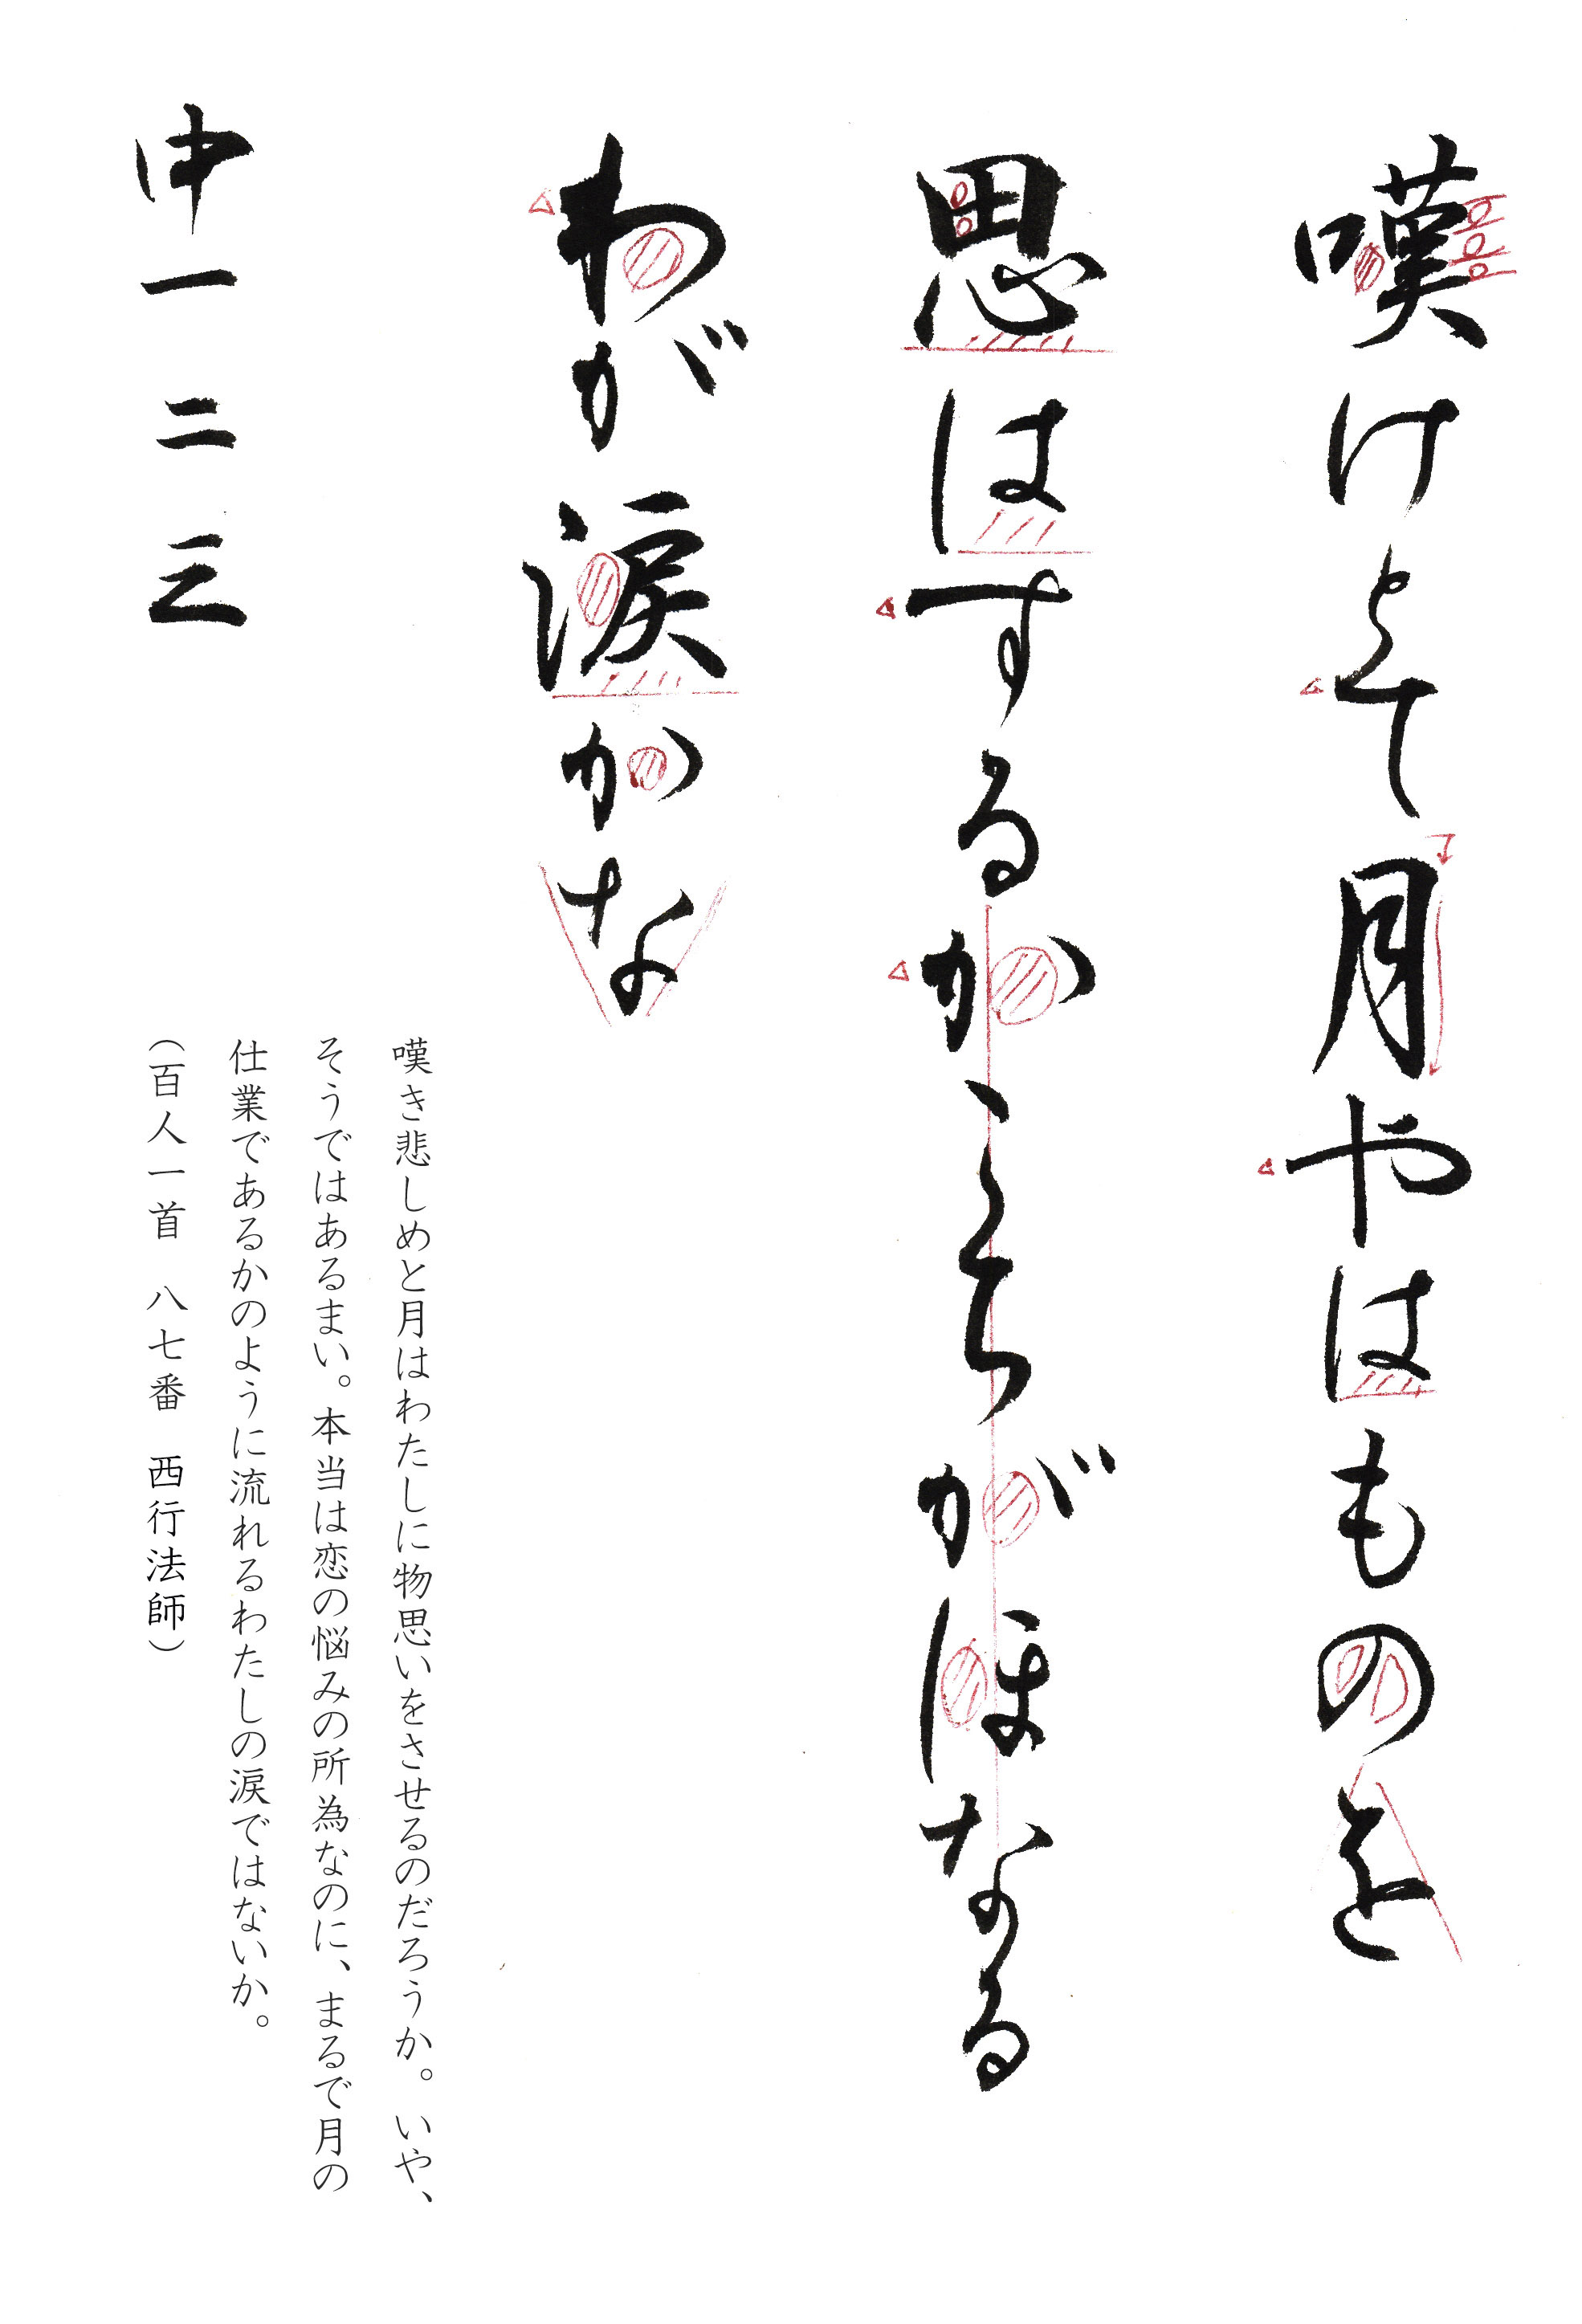 嘆けとて月やはものを
思はするかこちがほなる
わが涙かな
中一二三
嘆き悲しめと月はわたしに物思いをさせるのだろうか。いや、
そうではあるまい。本当は恋の悩みの所為なのに、まるで月の
仕業であるかのように流れるわたしの涙ではないか。
（百人一首　八七番　西行法師）